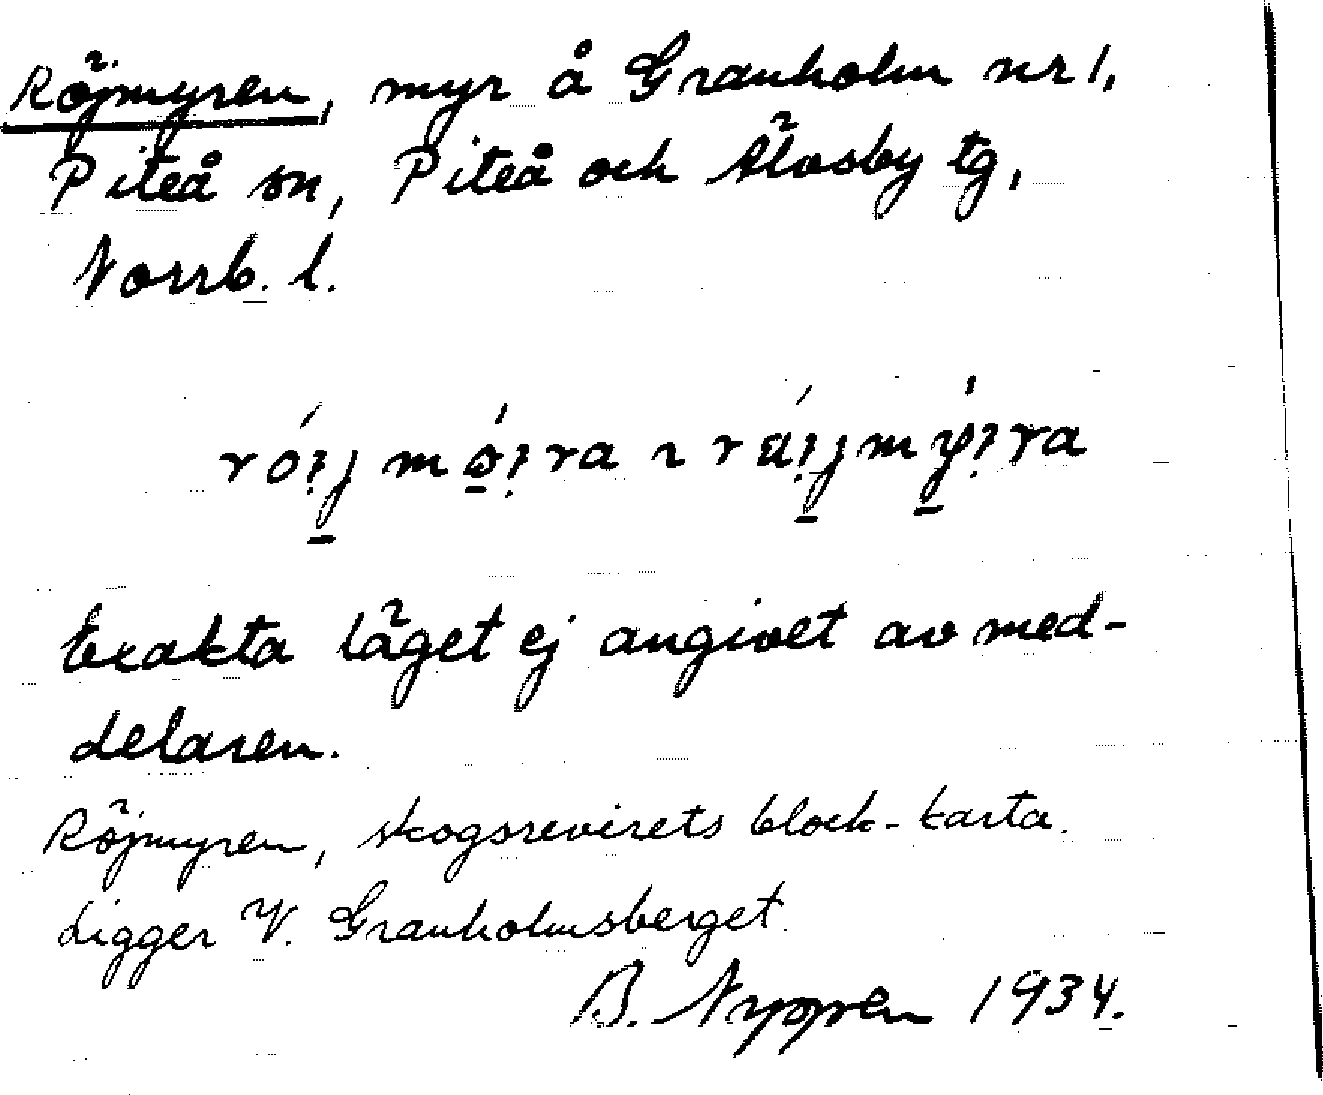 Röjmyren, myr å Granholm nr 1,
Piteå sn, Piteå och Älvsby tg,
Norrb. l.
Exakta läget ej angivet av med-
delaren.
Röjmyren, skogsrevirets block-karta.
Ligger V. Granholmsberget.
B. 1934.